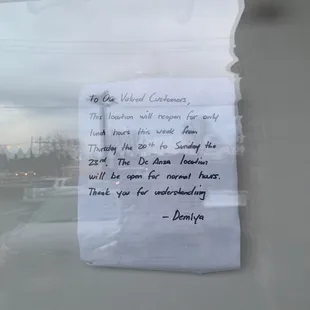 To Our Valued Customers,
This location will reopen for only
lunch hours this week from
Thursday the 20th to Sunday the
23rd. The De Anza location
will be open for normal hours.
Thank you for understanding
- Demiya